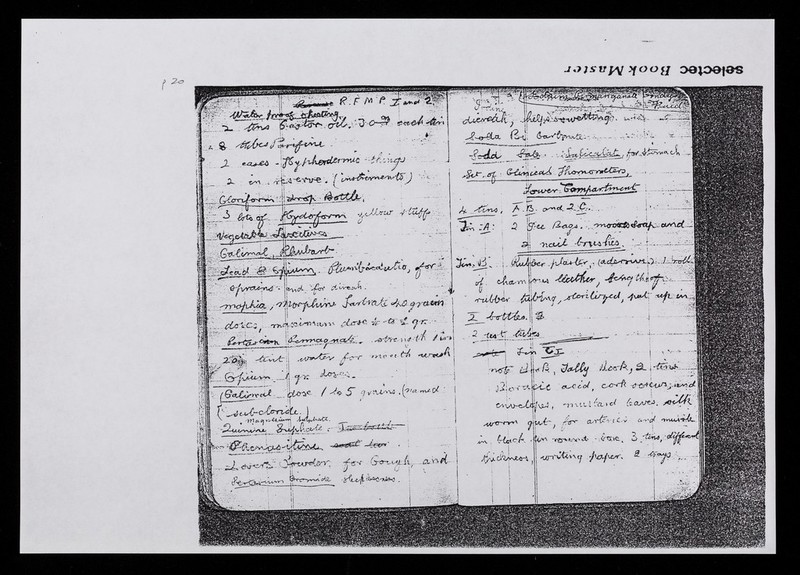 selectec Book Master
p 20
R. F. M P I and 2
Water proof sheating,
2 tins Castor oil. 30 each tin
8 tubes Parifine
2 cases - Hypherdermic things
2 in reserve. (instriments)
Cloriform drop Bottle,
3 lots of Hydoform yellow stuff
Vegetable Laxcitives
Calimal, Rhubarb
Lead & Opium. for
sprains and for direah.
mophia, morphine Tartrate 40 grain
doses, maximum dose to gr.
Permagnate. strength 1 in
20 tint water for mouth wash
Opium 1 gr. doses.
(Calimal dose 1 to 5 grains. (named
(subcloride.)
Magnesium Sulphate
Quinine Suphate.
Phenasitine
Dovers Powder, for Cough, and
Bromide sleeplesness.
diereah, helps sweetting
Soda Bi Carbonate
Sodd Sale Salicalat, for Stomach
Set of Clinical Thomometors,
Lower Compartment
4 tins, A. B. and 2 C.
Tin :A: 2 Ice Bags. soap and
2 nail brushes.
Tin :B: Rubber plaster, 1 roll
of chamious leather, length of
rubber tubing, sterilized, put up in
2 bottles.
2 test tubes
Tin C I
note Book, Tally Book, 2 tins
Boracic acid, cork screws, and
envelopes, mustard leaves, silk
worm gut, for arteries and muscle
in black tin round box. 3 tins, different
thickness, writing paper. 2 bags